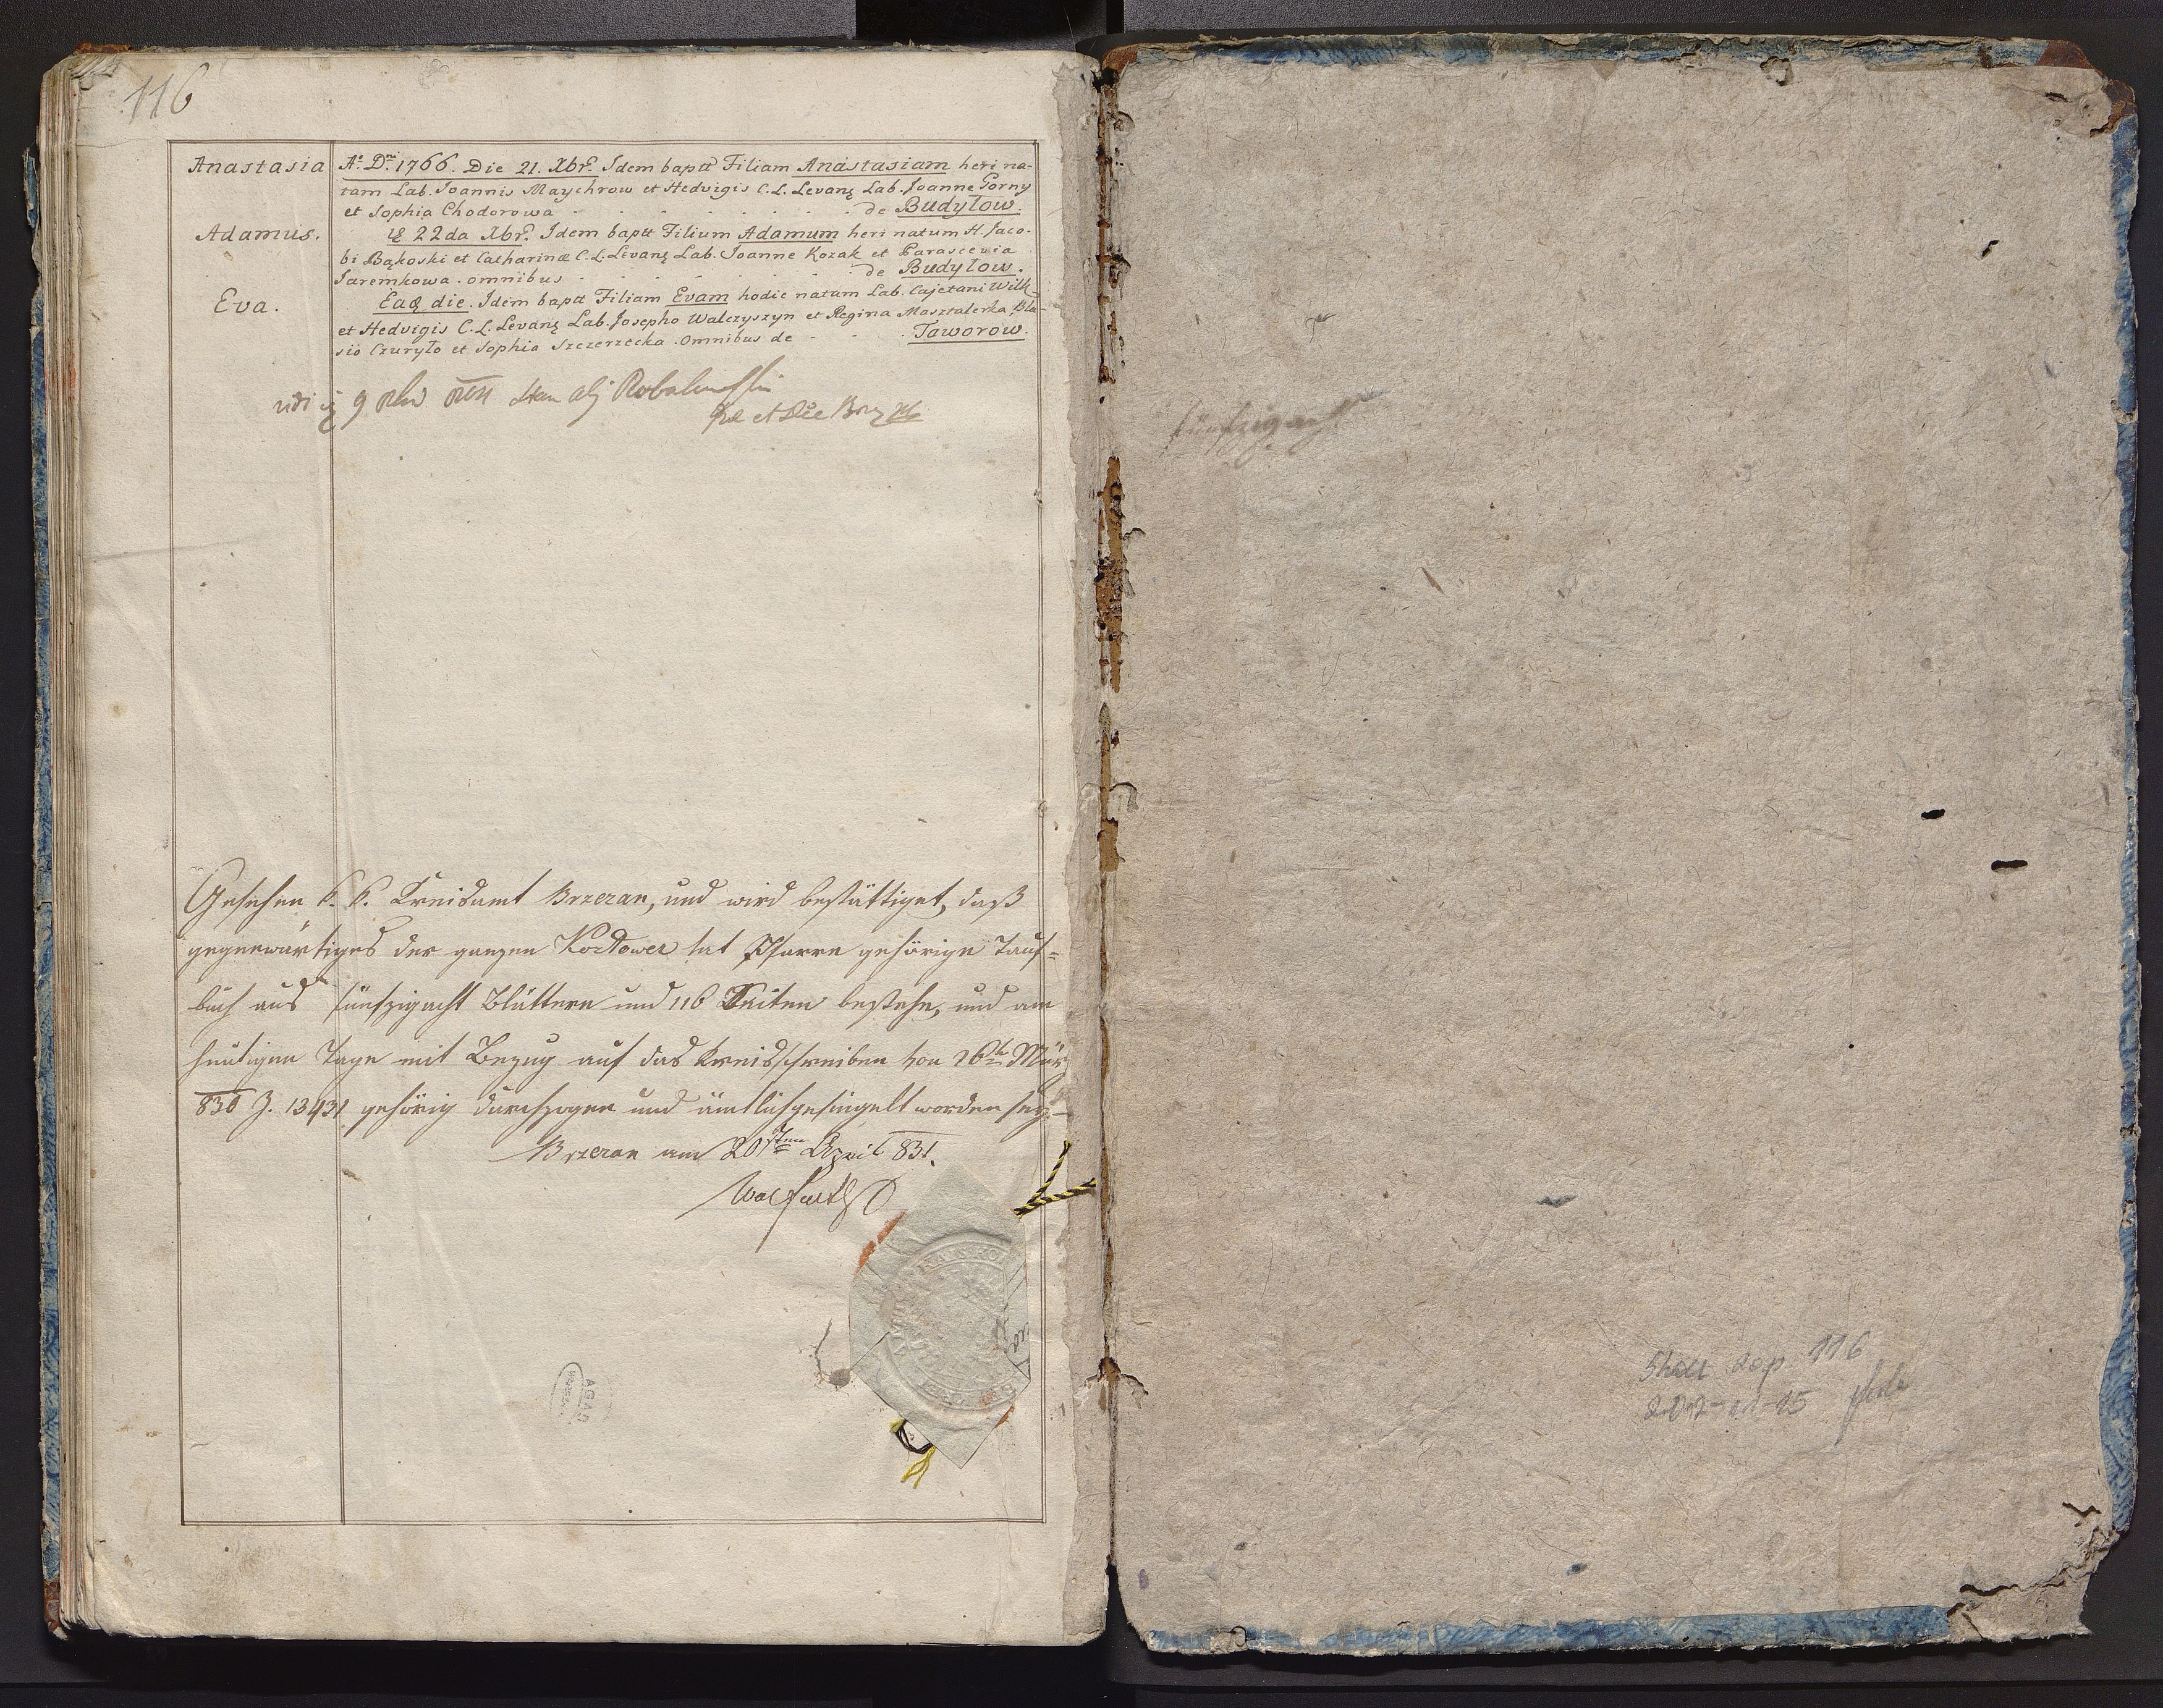 116
Anastasia
Ao. Dni. 1766. Die 21. Xbr. Idem baptt Filiam Anastasiam heri na-
tam Lab. Joannis Maychrow et Hedvigis C. L. Levang Lab. Joanne Gorny
et Sophia Chodorowa de Budyłow.
Adamus.
22da Xbr. Idem baptt Filium Adamum heri natum H. Jaco-
bi Bąkoski et Catharinæ C. L. Levang Lab. Joanne Kozak et Parascevia
Jaremkowa. omnibus de Budyłow.
Eva.
Eaq die. Idem baptt Filiam Evam hodie natam Lab. Cajetani Wilk
et Hedvigis C. L. Levang Lab. Josepho Walczyszyn et Regina Masztalerka Bla-
sio Czuryło et Sophia Szczerzecka. omnibus de Taworow.
Gesehen k. k. Kreisamt Brzezan, und wird bestättiget, daß
gegenwärtiges der ganzen Kozłower lat Pfarre gehörige Tauf-
buch aus fünfzigacht Blättern und 116 Seiten bestehe, und am
heutigen Tage mit Bezug auf das Kreisschreiben von 26t März
830 Z. 13431 gehörig durchzogen und ämtlich gesiegelt worden sey.
Brzezan am 20sten April 831.
AGAD
fünfzigacht
116